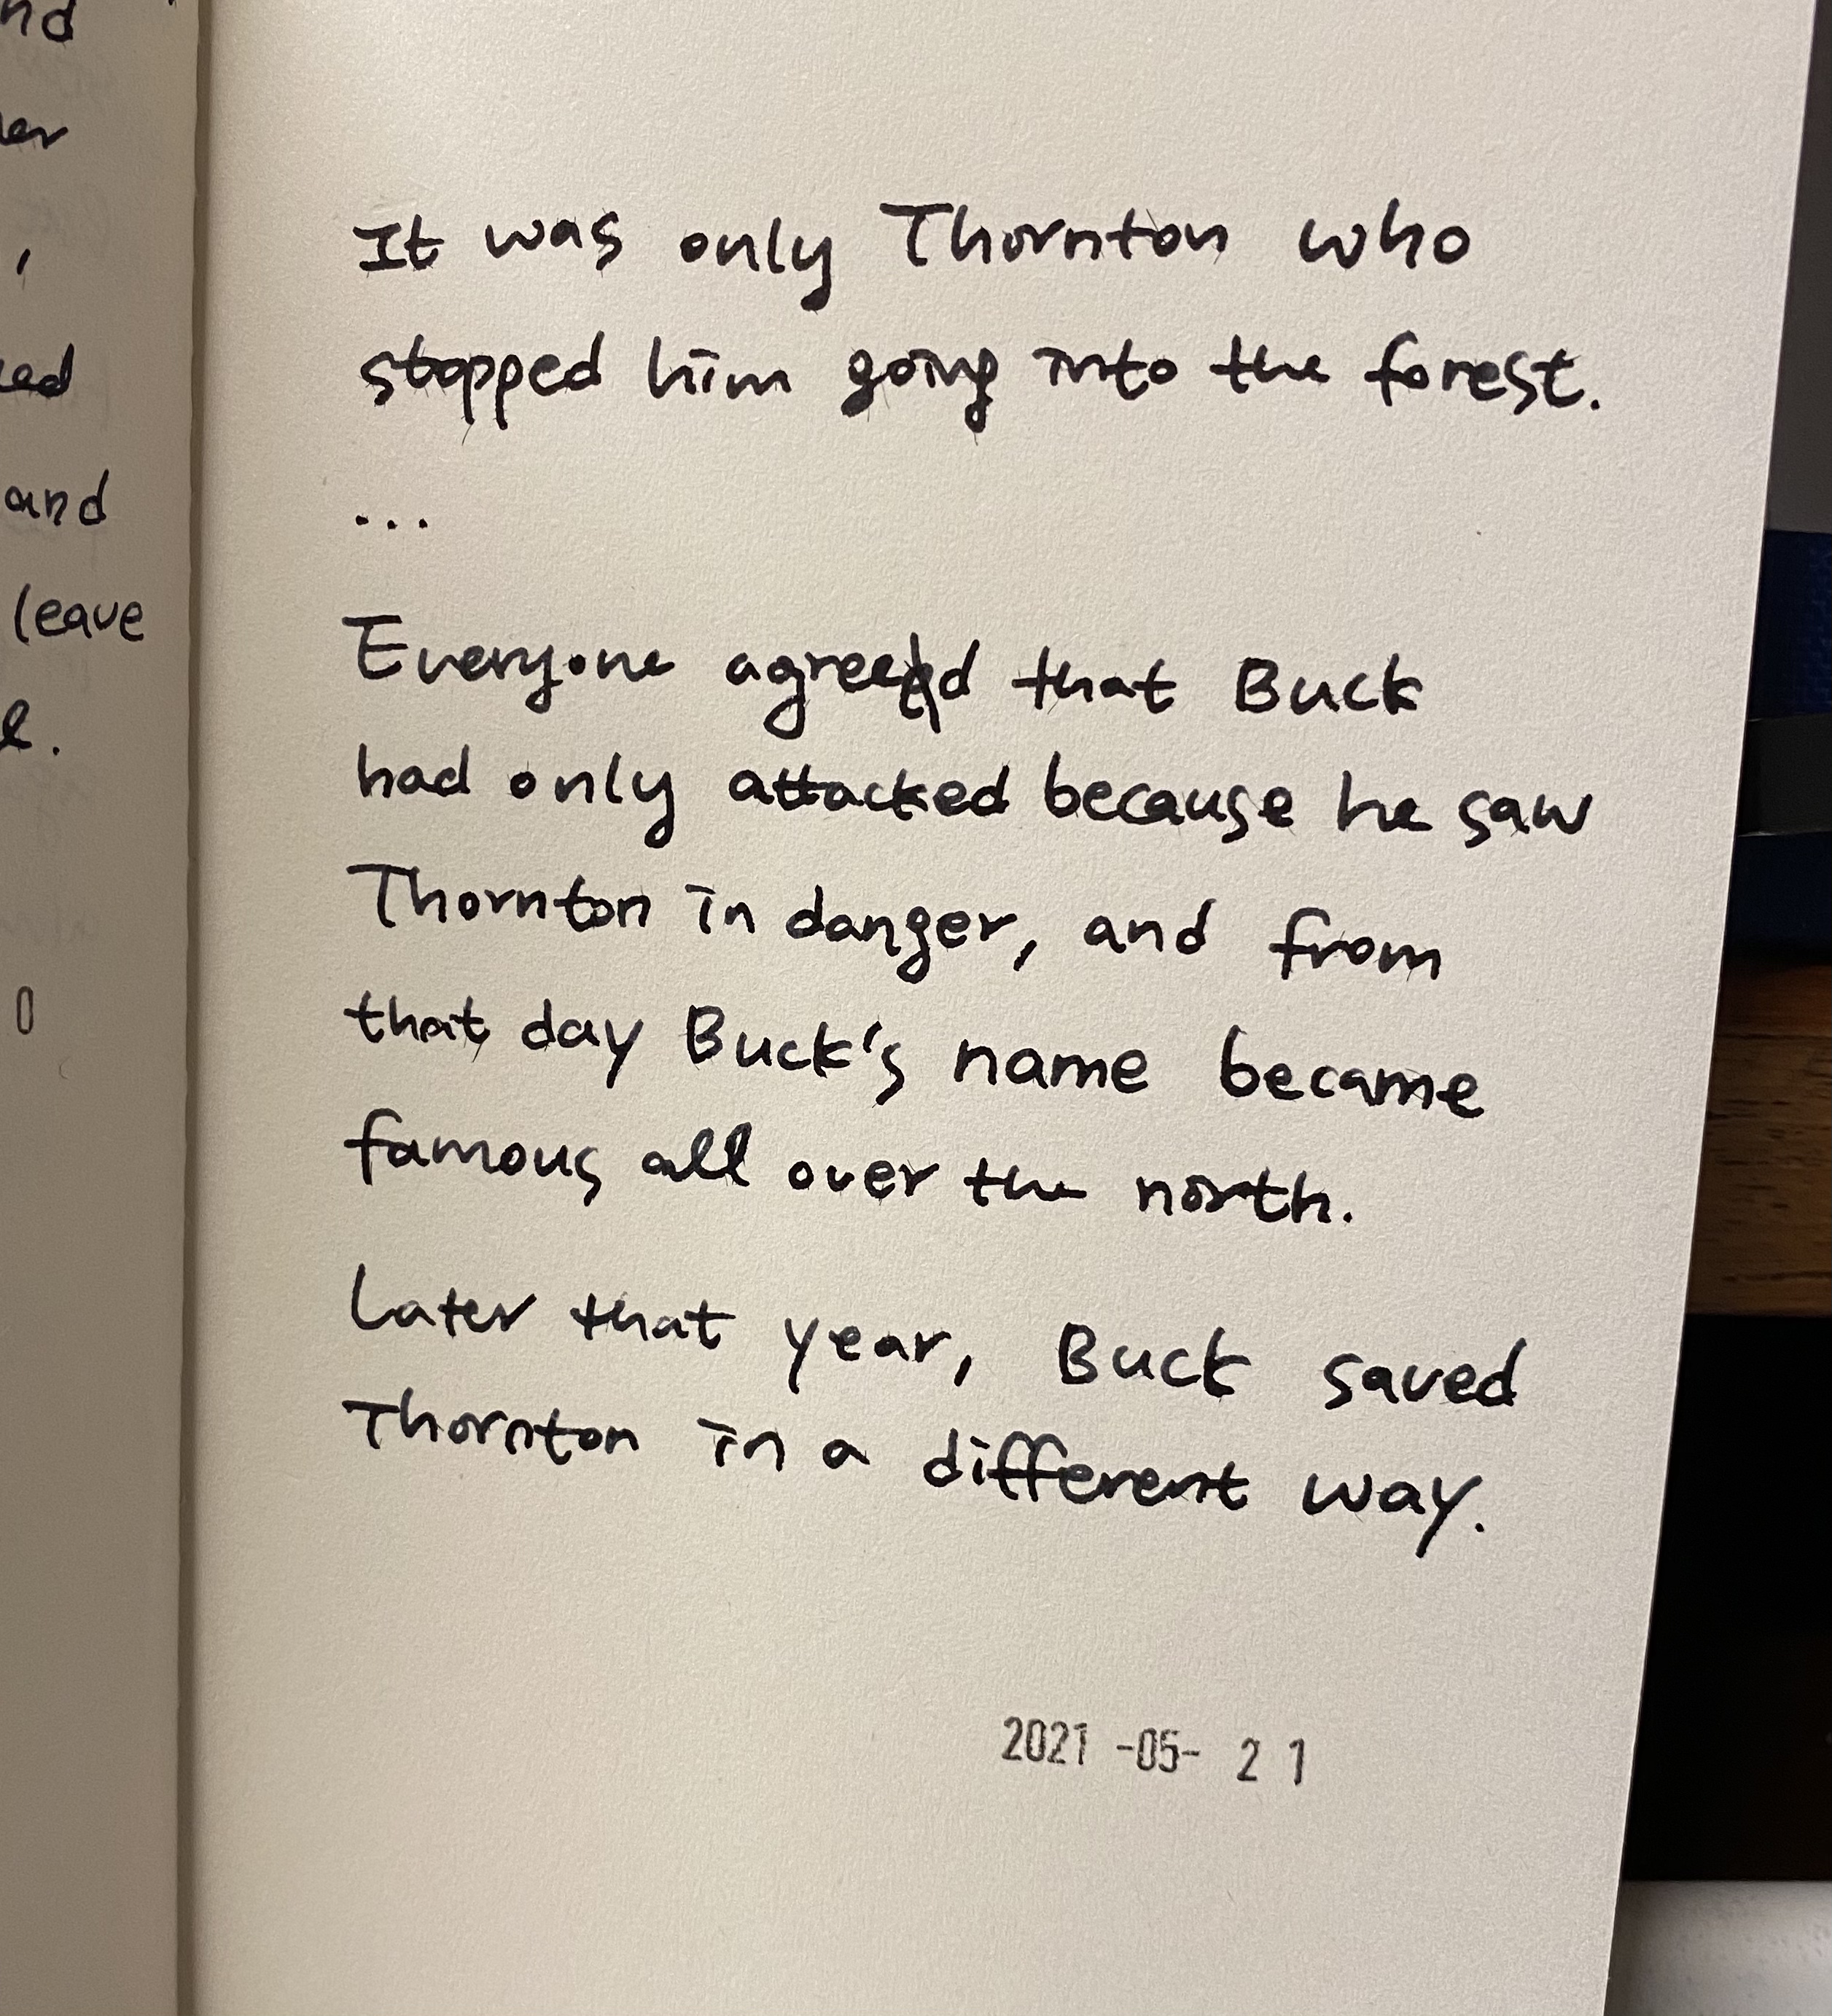 nd
er
,
ed
and
leave
e.
0
It was only Thornton who
stopped him going into the forest.
...
Everyone agreed that Buck
had only attacked because he saw
Thornton in danger, and from
that day Buck's name became
famous all over the north.
Later that year, Buck saved
Thornton in a different way.
2021 -05- 21